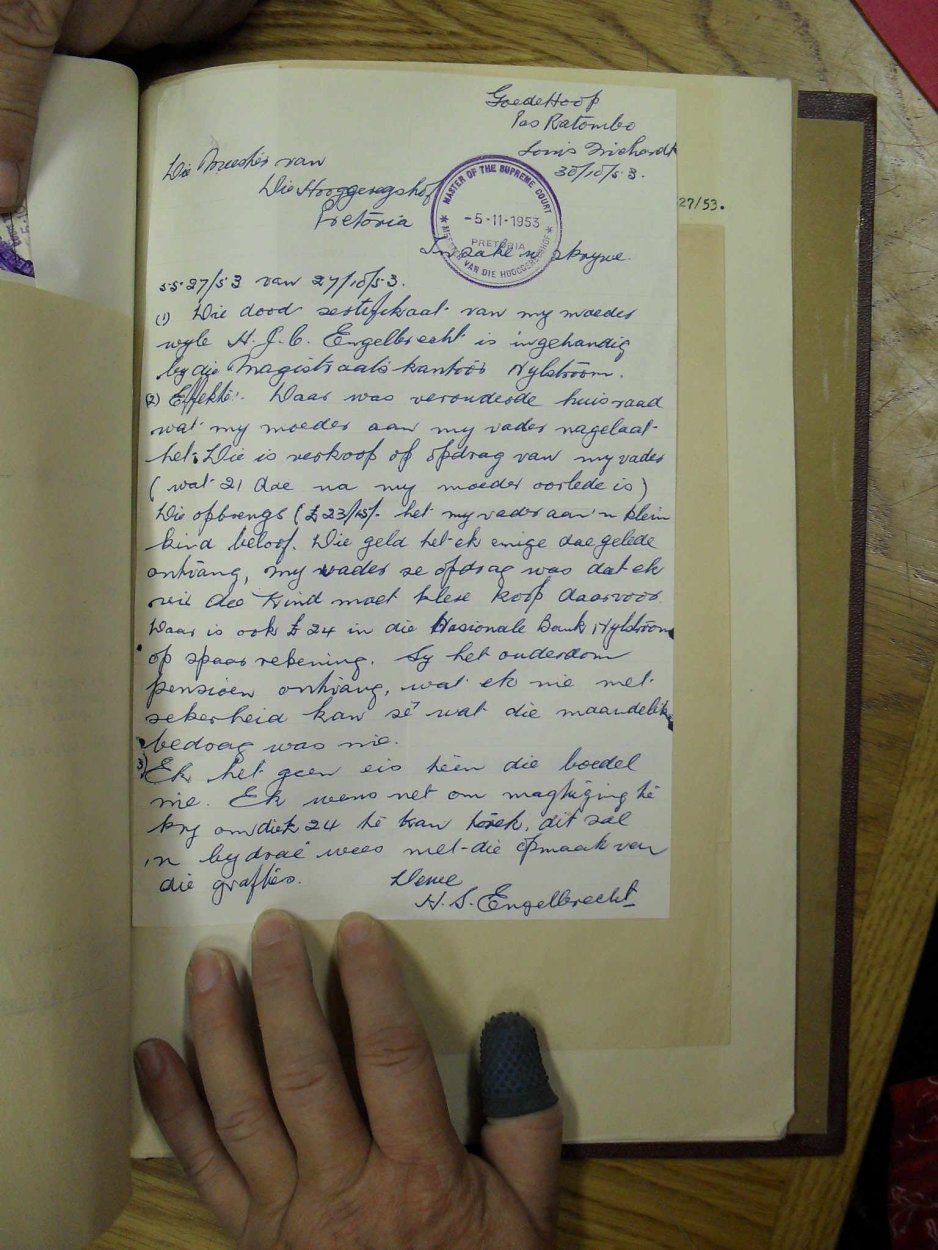 GoedeHoop
Pos Ratombo
Louis Trichardt
30/10/53.
Die Meester van
Die Hooggeregshof
Pretoria
MASTER OF THE SUPREME COURT
-5-11-1953
PRETORIA
MEESTER VAN DIE HOOGGEREGSHOF
27/53.
In sake u skrywe
5527/53 van 27/10/53.
(1) Die dood sertifikaat van my moeder
wyle H. J. C. Engelbrecht is ingehandig
by die Magistraats kantoor Nylstroom.
(2) Effekte:. Daar was verouderde huisraad
wat my moeder aan my vader nagelaat
het. Die is verkoop op opdrag van my vader
(wat 21 dae na my moeder oorlede is)
Die opbrengs (£23/15/- het my vader aan 'n klein
kind beloof. Die geld het ek enige dae gelede
ontvang, my vader se opdrag was dat ek
vir die kind moet klere koop daarvoor.
Daar is ook £24 in die Nasionale Bank Nylstroom
op spaar rekening. Sy het ouderdom
pensioen ontvang, wat ek nie met
sekerheid kan sê wat die maandelik
bedrag was nie.
3) Ek het geen eis teen die boedel
nie. Ek wens net om magtiging te
kry om die £24 te kan trek, dit sal
'n bydrae wees met die opmaak van
die graftes.
Dewe
H. S. Engelbrecht